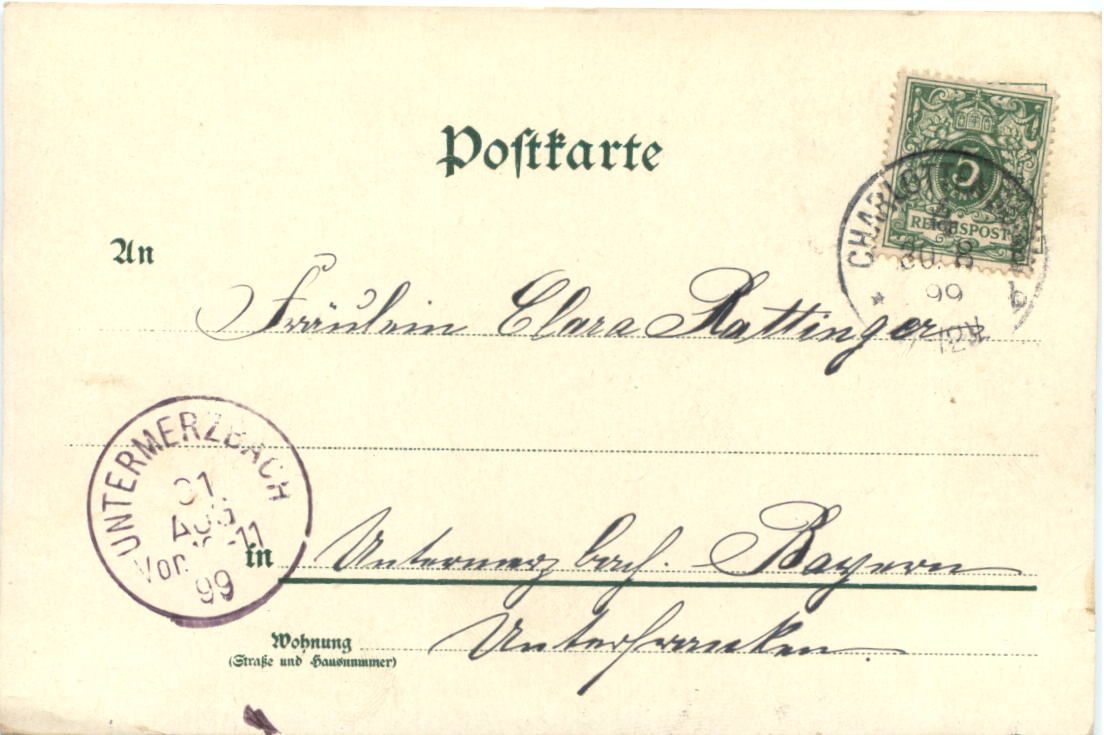 Postkarte
5
REICHSPOST
CHARLOTTENBURG
30.8
99
b
An
Fräulein Clara Rattinger
UNTERMERZBACH
31.
AUG
Vor. 10-11
99
in Untermerzbach. Bayern
Wohnung
(Straße und Hausnummer)
Unterfranken.